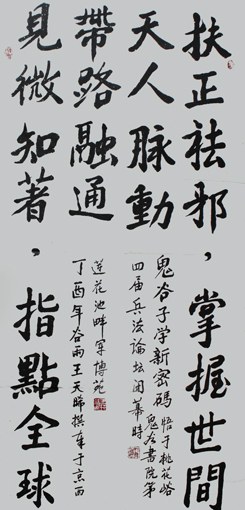 扶正祛邪，掌握世間
天人脈動
帶路融通
見微知著，指點全球
鬼谷子学新密碼
悟于桃花峪
鬼谷書院第
四届兵法論坛闭幕時
莲花池畔军博苑
丁酉年谷雨王天
撰于京西